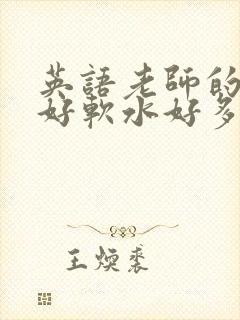 英語老師的
好軟水好多
王煥裘